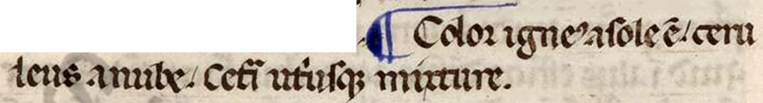 ¶ Color igneꝰ a sole ē / ceru
leus a nube. Cetͥ utͥusqꝫ mixture.